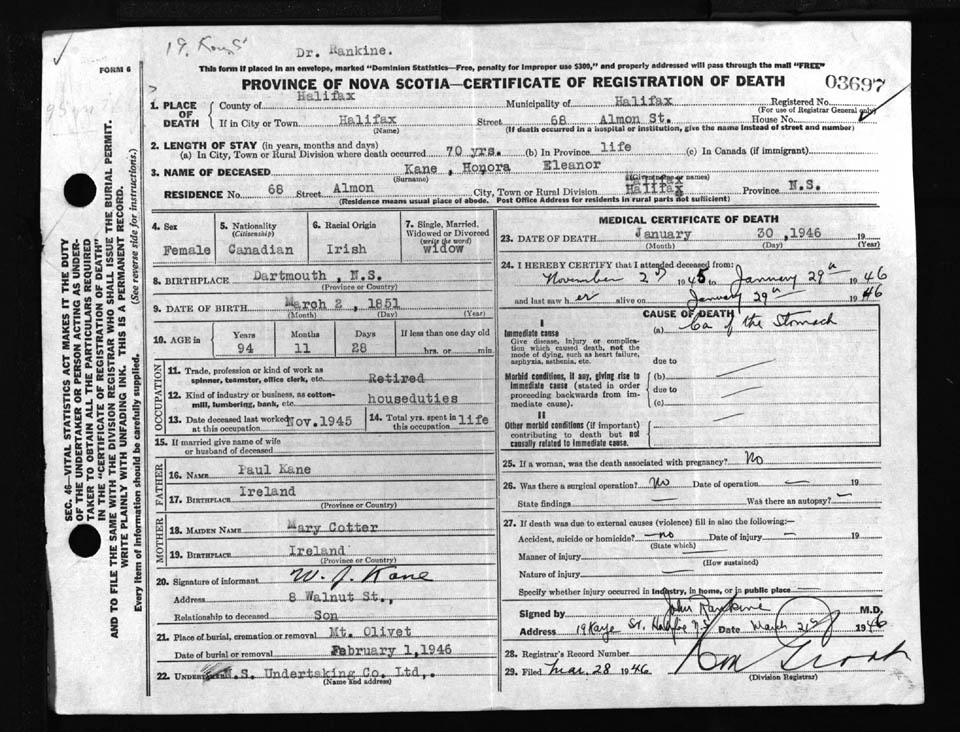 19. Kay St
Dr. Rankine.
FORM 6
This form if placed in an envelope, marked "Dominion Statistics—Free, penalty for improper use $300," and properly addressed will pass through the mail "FREE"
PROVINCE OF NOVA SCOTIA—CERTIFICATE OF REGISTRATION OF DEATH 03697
1. PLACE OF DEATH
County of Halifax Municipality of Halifax Registered No.
(For use of Registrar General only)
If in City or Town Halifax Street 68 Almon St. House No.
(Name) (If death occurred in a hospital or institution, give the name instead of street and number)
2. LENGTH OF STAY (in years, months and days)
(a) In City, Town or Rural Division where death occurred 70 yrs. (b) In Province life (c) In Canada (if immigrant)
3. NAME OF DECEASED Kane, Honora Eleanor
(Surname) (Given or names)
RESIDENCE No. 68 Street Almon City, Town or Rural Division Halifax Province N.S.
(Residence means usual place of abode. Post Office Address for residents in rural parts not sufficient)
4. Sex Female
5. Nationality (Citizenship) Canadian
6. Racial Origin Irish
7. Single, Married, Widowed or Divorced (write the word) widow
8. BIRTHPLACE Dartmouth, N.S.
(Province or Country)
9. DATE OF BIRTH March 2, 1851
(Month) (Day) (Year)
10. AGE in Years 94 Months 11 Days 28 If less than one day old hrs. or min.
OCCUPATION
11. Trade, profession or kind of work as spinner, teamster, office clerk, etc. Retired
12. Kind of industry or business, as cotton-mill, lumbering, bank, etc. houseduties
13. Date deceased last worked at this occupation Nov. 1945
14. Total yrs. spent in this occupation life
15. If married give name of wife or husband of deceased
FATHER
16. NAME Paul Kane
17. BIRTHPLACE Ireland
(Province or Country)
MOTHER
18. MAIDEN NAME Mary Cotter
19. BIRTHPLACE Ireland
(Province or Country)
20. Signature of informant W. J. Kane
Address 8 Walnut St.,
Relationship to deceased Son
21. Place of burial, cremation or removal Mt. Olivet
Date of burial or removal February 1, 1946
22. UNDERTAKER N.S. Undertaking Co. Ltd,.
(Name and address)
MEDICAL CERTIFICATE OF DEATH
23. DATE OF DEATH January 30, 1946 19
(Month) (Day) (Year)
24. I HEREBY CERTIFY that I attended deceased from:
November 2nd 1945 to January 29th 1946
and last saw her alive on January 29th 1946
CAUSE OF DEATH
I
Immediate cause (a) Ca of the Stomach
Give disease, injury or complication which caused death, not the mode of dying, such as heart failure, asphyxia, asthenia, etc.
due to
Morbid conditions, if any, giving rise to immediate cause (stated in order proceeding backwards from immediate cause).
(b)
due to
(c)
II
Other morbid conditions (if important) contributing to death but not causally related to immediate cause.
25. If a woman, was the death associated with pregnancy? No
26. Was there a surgical operation? No Date of operation — 19
State findings — Was there an autopsy? —
27. If death was due to external causes (violence) fill in also the following:—
Accident, suicide or homicide? —no Date of injury — 19
(State which)
Manner of injury —
(How sustained)
Nature of injury —
Specify whether injury occurred in industry, in home, or in public place —
Signed by John Rankine M.D.
Address 19 Kaye St. Halifax N.S. Date March 1946
28. Registrar's Record Number
29. Filed Mar. 28 1946
(Division Registrar)
SEC. 46—VITAL STATISTICS ACT MAKES IT THE DUTY
OF THE UNDERTAKER OR PERSON ACTING AS UNDER-
TAKER TO OBTAIN ALL THE PARTICULARS REQUIRED
IN THE "CERTIFICATE OF REGISTRATION OF DEATH"
AND TO FILE THE SAME WITH THE DIVISION REGISTRAR WHO SHALL ISSUE THE BURIAL PERMIT.
WRITE PLAINLY WITH UNFADING INK. THIS IS A PERMANENT RECORD.
Every item of information should be carefully supplied. (See reverse side for instructions.)